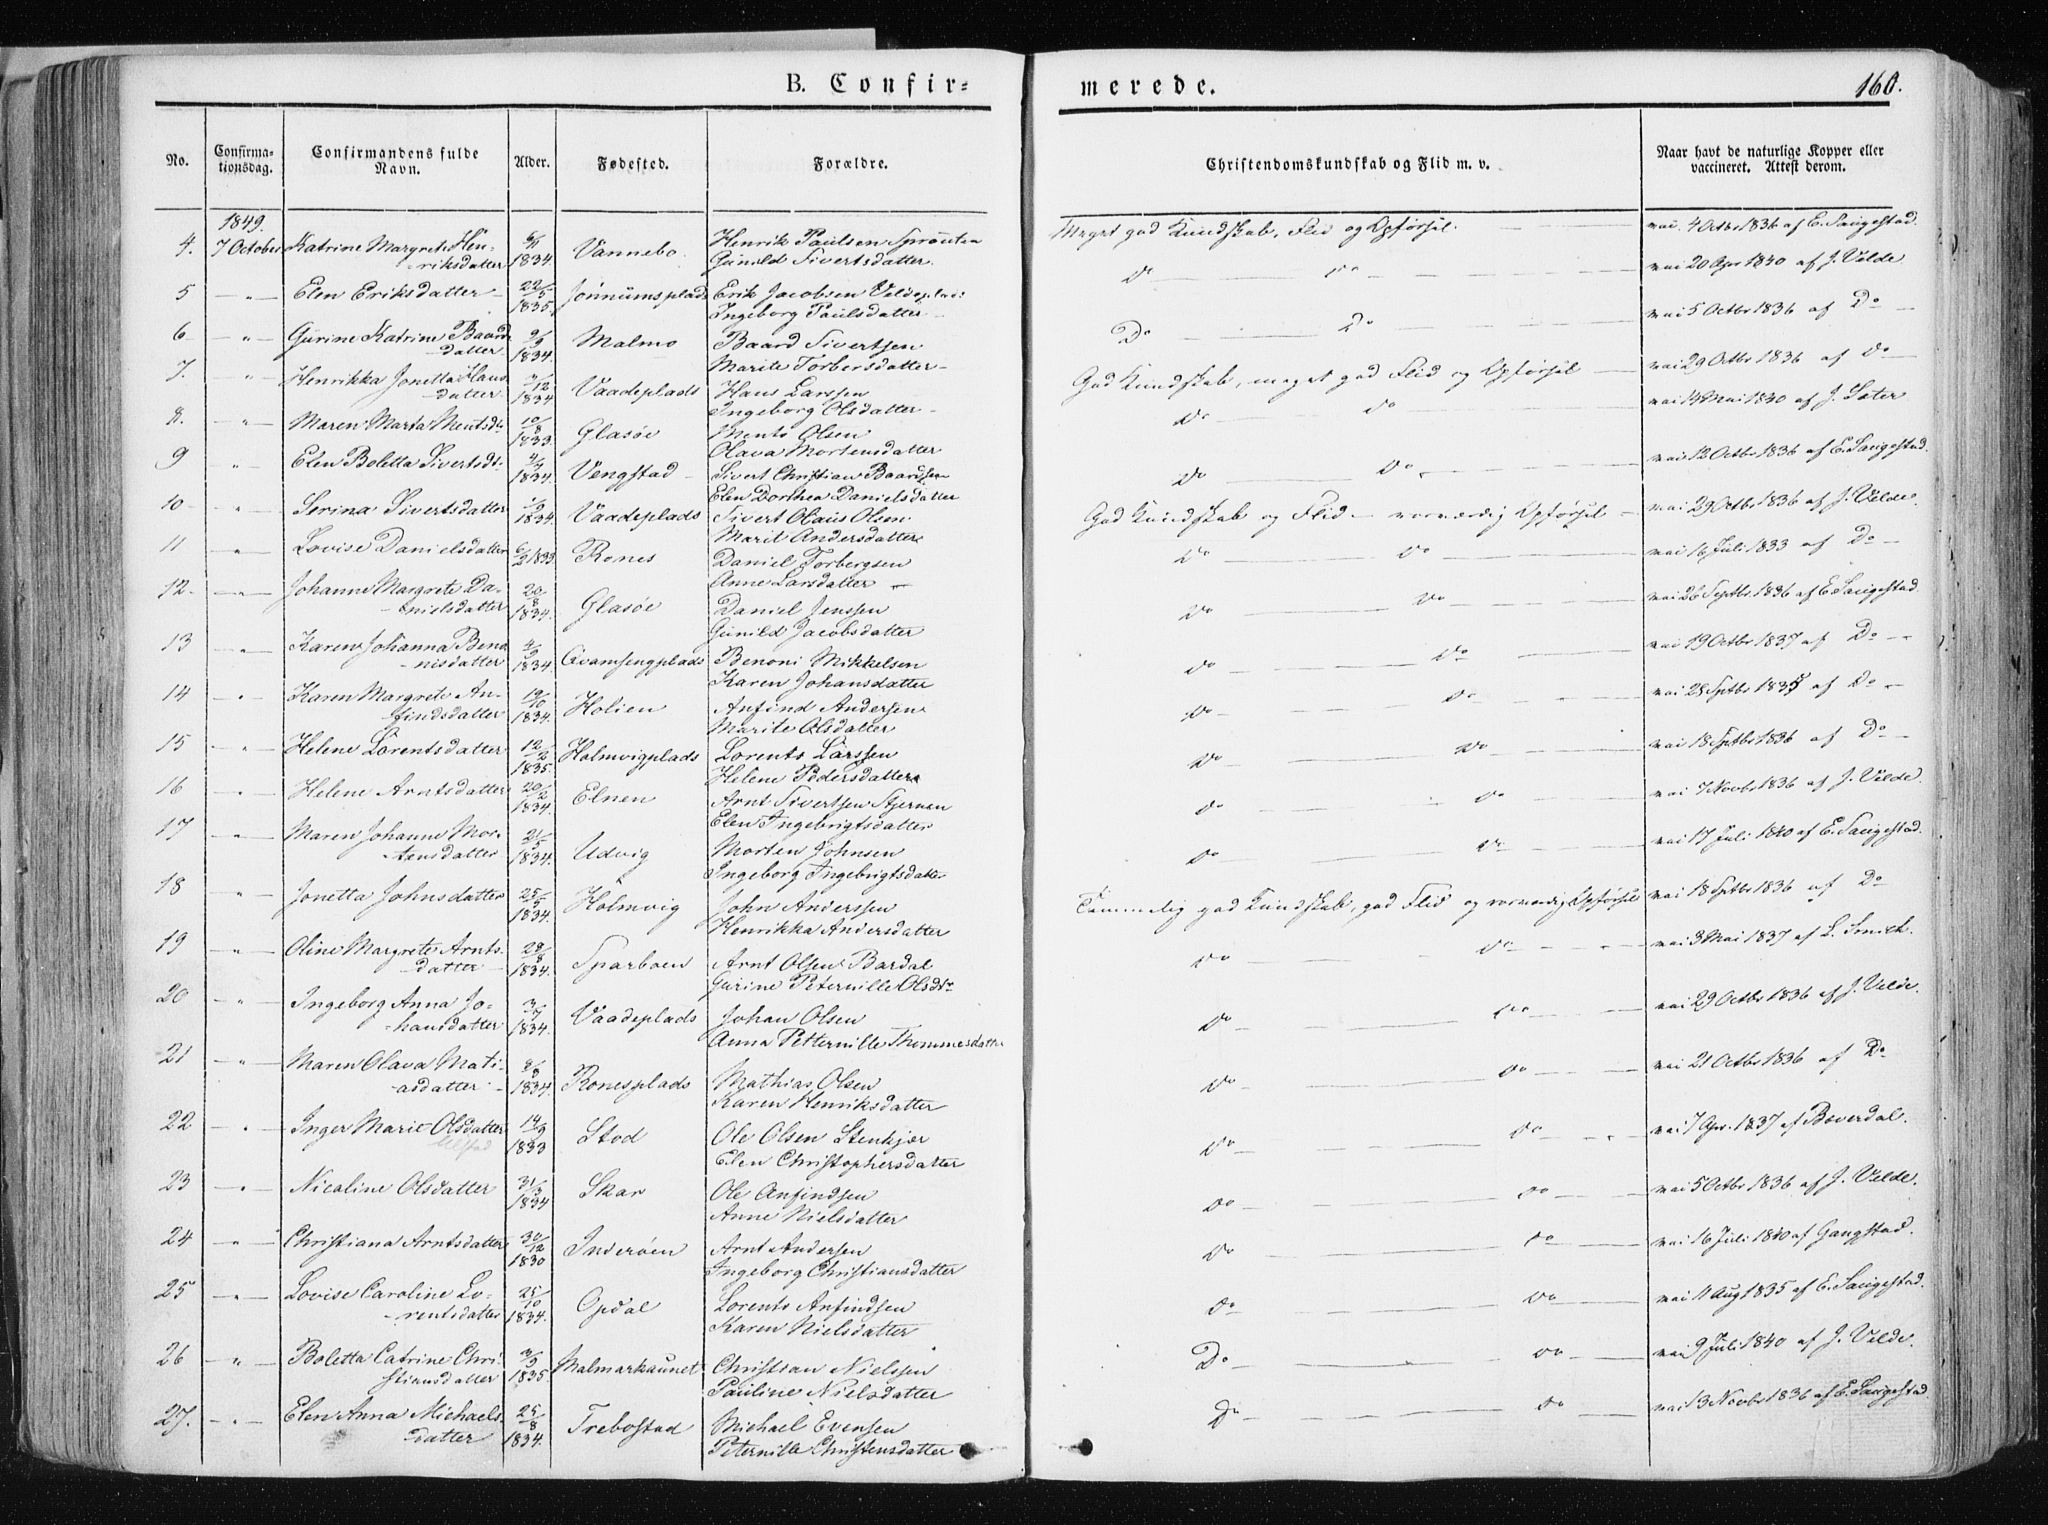 B. Confir=
merede.
160.
No.
Confirma-
tionsdag.
Confirmandens fulde
Navn.
Alder.
Fødested.
Forældre.
Christendomskundskab og Flid m. v.
Naar havt de naturlige Kopper eller
vaccineret. Attest derom.
1849.
4. 7 October Katrine Margrete Hen-
riksdatter 1834 Vannebo Henrik Paulsen
Gunild Sivertsdatter.
Meget god Kundskab, Flid og Opførsel. vai. 4 Octbr 1836 af E. Saugestad.
5 -"- Elen Eriksdatter 22/5 1835 Jønnumsplads Erik Jacobsen
Ingeborg Paulsdatter
do do vai 20 Apr 1840 af J. Velde
6 -"- Gurine Katrine Baards
datter 9/9 1834. Malmo Baard Sivertsen
Marite Torbersdatter
Do Do vai 5 Octbr 1836 af Do
7. " Henrikka Jonetta Hans
datter 1834 Vaadeplads Hans Larssen
Ingeborg Olsdatter
God Kundskab, meget god Flid og Opførsel vai 29 Octbr 1836 af do
8. " Maren Marta Mentsdr 10/8 1833. Glasøe Ments Olsen
Olava Mortensdatter
do do vai 14 Mai 1840 af J. Sater
9 " Elen Boletta Sivertsdr 1834. Vengstad Sivert Christian Baardsen
Elen Dorthea Danielsdatter
do do vai 12 Octbr 1836 af E. Saugestad.
10 -"- Serina Sivertsdatter 1834. Vaadeplads Sivert Olaus Olsen
Marit Andersdatter
God Kundskab og Flid - Opførsel vai 29 Octbr 1836 af J. Velde.
11 " Lovise Danielsdatter 6/2 1833 Rones Daniel Torbergsen
Anne Larsdatter
do do vai 16 Juli 1833 af Do
12. -"- Johanne Margrete Da-
nielsdatter 20/8 1834. Glasøe Daniel Jenssen
Gunild Jacobsdatter
do do vai 26 Septbr 1836 af E. Saugestad.
13 " Karen Johanna Beno
nisdatter 4/9 1834. Qvamsengplads Benoni Mikkelsen
Karen Johansdatter
do do vai 19 Octbr 1837 af Do
14 -"- Karen Margrete An-
findsdatter 19/10 1834. Holien Anfind Andersen
Marite Olsdatter
do do vai 28 Sptbr 1835 af Do
15 -"- Helene Lorentsdatter 12/2 1835. Holmvigplads Lorents Larssen
Helene Pedersdatter
do do vai 18 Sptbr 1836 af Do
16 " Helene Arntsdatter 20/2 1834. Elnen Arnt Sivertsen Stjernen
Elen Ingebrigtsdatter
do do vai 7 Novbr 1836 af J. Velde.
17 " Maren Johanne Mor-
tensdatter 21/5 1834. Udvig Morten Johnsen
Ingeborg Ingebrigtsdatter
do do vai 17 Juli 1840 af E. Saugestad.
18 " Jonetta Johnsdatter 25/5 1834. Holmvig John Anderssen
Henrikka Andersdatter
Temmelig god Kundskab, god Flid og Opførsel vai 18 Sptbr 1836 af Do
19 " Oline Margrete Arnts
datter 28/8 1834. Sparboen Arnt Olsen Bardal
Gurine Peternille Olsdtr
do do vai 3 Mai 1837 af L. Smith.
20 -"- Ingeborg Anna Jo-
hansdatter 3/7 1834. Vaadeplads Johan Olsen
Anna Petternille Thommesdatter
do do vai 29 Octbr 1836 af J. Velde.
21 -"- Maren Olava Mati-
asdatter 8/8 1834. Ronesplads Mathias Olsen
Karen Henriksdatter
do do vai 21 Octbr 1836 af Do
22 -"- Inger Marie Olsdatter 14/9 1833 Stod Ole Olsen Stenkjær
Elen Christophersdatter
do do vai 7 Apr. 1837 af Boverdal.
23 " Nicoline Olsdatter 31/3 1834 Skar Ole Anfindsen
Anne Nielsdatter
do do vai 5 Octbr 1836 af J. Velde.
24 -"- Christiana Arntsdatter 30/12 1830 Inderøen Arnt Andersen
Ingeborg Christiansdatter
do do vai 16 Juli 1840 af Gangstad.
25 -"- Lovise Caroline Lo-
rentsdatter 25/10 1834. Opdal Lorents Anfindsen
Karen Nielsdatter
do do vai 11 Aug 1835 af E. Saugestad.
26 -"- Boletta Catrine Chri-
stiansdatter 1835. Malmarkaunet Christian Nielssen
Pauline Nielsdatter
Do do vai 9 Juli 1840 af J. Velde.
27. -"- Elen Anna Michaels
datter 25/8 1834. Trebostad Michael Evensen
Peternille Christensdatter
Do do vai 13 Novbr 1836 af E. Saugestad